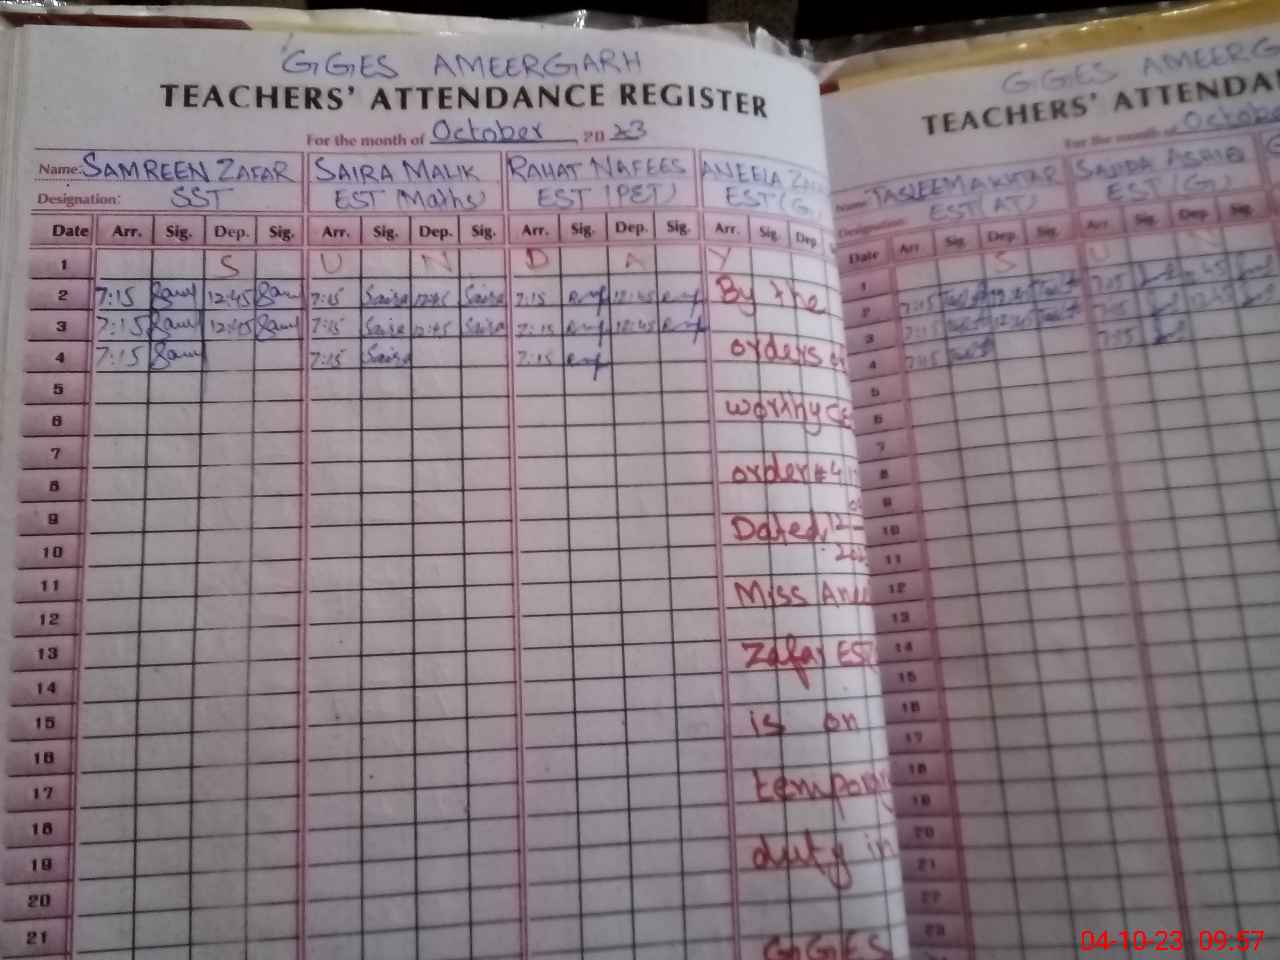 GGES AMEERGARH
TEACHERS' ATTENDANCE REGISTER
For the month of October 20 23
Name: SAMREEN ZAFAR SAIRA MALIK RAHAT NAFEES ANEELA
Designation: SST EST (Maths) EST (PET) EST (G)
Date Arr. Sig. Dep. Sig. Arr. Sig. Dep. Sig. Arr. Sig. Dep. Sig. Arr. Sig. Dep
1 S U N D A Y
2 7:15 12:45 7:15 Saira 12:45 Saira 7:15 12:45 By the
3 7:15 12:45 7:15 Saira 12:45 Saira 7:15 12:45
4 7:15 7:15 Saira 7:15 orders
5
6 worthy
7
8 order # 4
9
10 Dated 12-
11
12 Miss
13
14 Zafar EST
15
16 is on
17
18 temporary
19
20 duty in
21 GGES
GGES AMEERG
TEACHERS' ATTENDA
For the month of Octobe
Name: TASLEEM AKHTAR SAJIDA ASHIQ
Designation: EST (AT) EST (G)
Date Arr Sig. Dep. Sig. Arr. Sig. Dep. Sig.
1 S U N
2 7:15 12:45 7:15 12:45
3 7:15 12:45 7:15 12:45
4 7:15 7:15
5
6
7
8
9
10
11
12
13
14
15
16
17
18
19
20
21
22
23
04-10-23 09:57